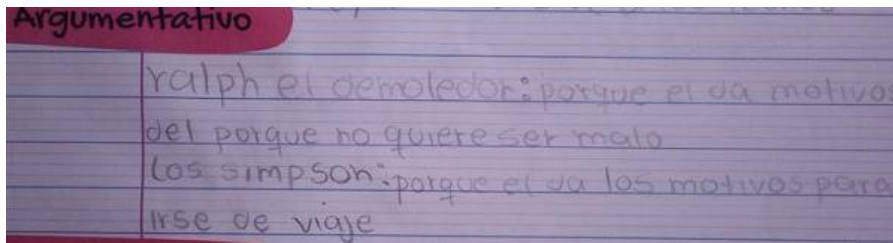 Argumentativo
ralph el demoledor: porque el da motivos
del porque no quiere ser malo
los simpson: porque el da los motivos para
irse de viaje